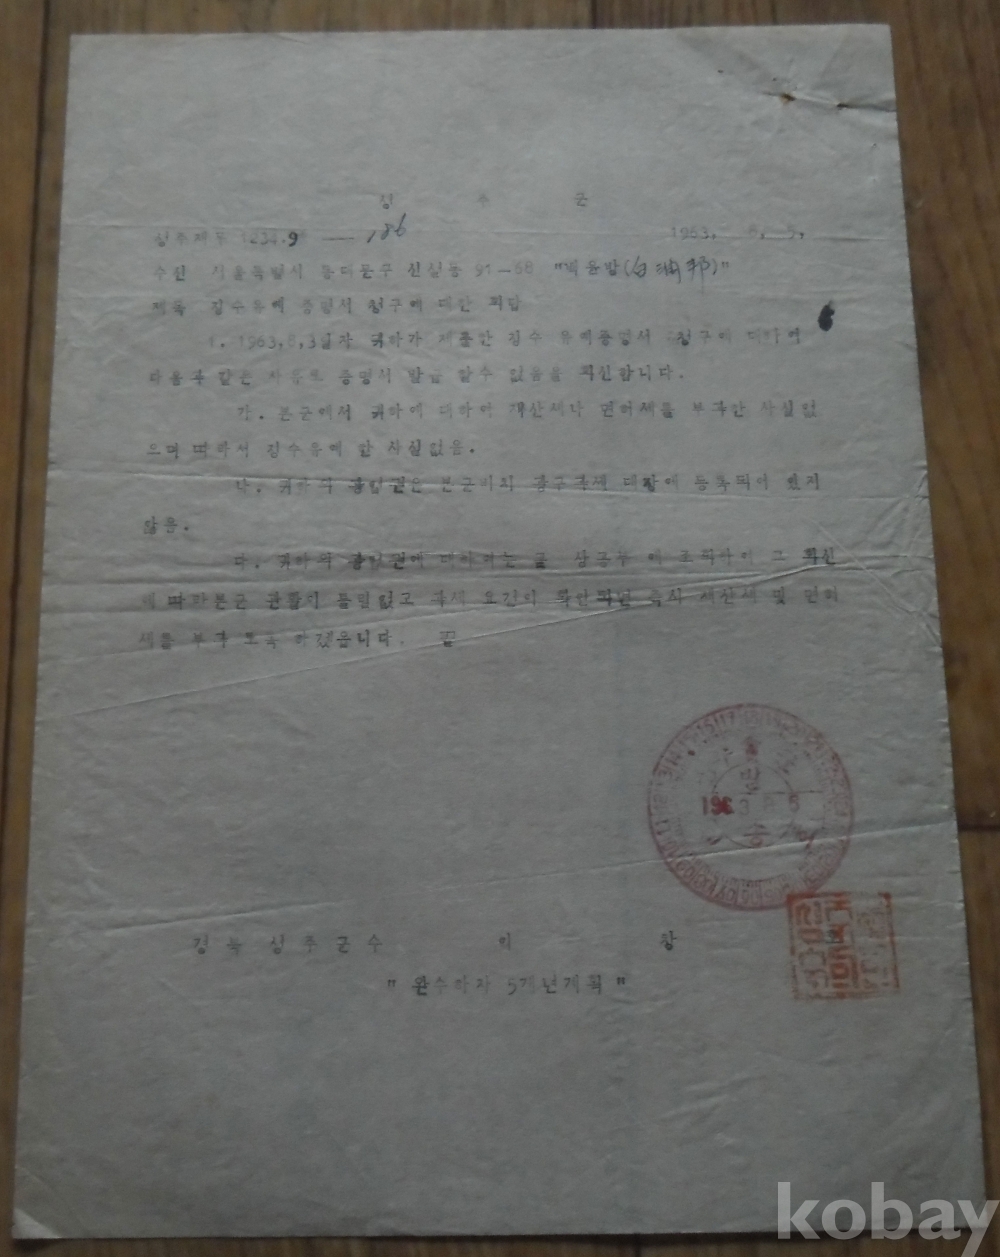 성 주 군
성주재무 1234.9 — 186 1963. 8. 5.
수신 서울특별시 동대문구 신설동 91-68 "백윤방(白潤邦)"
제목 징수유예 증명서 청구에 대한 회답
1. 1963.8.3일자 귀하가 제출한 징수 유예증명서 청구에 대하여
다음과 같은 사유로 증명서 발급 할수 없음을 회신합니다.
가. 본군에서 귀하에 대하여 재산세나 면허세를 부과한 사실없
으며 따라서 징수유예 한 사실없음.
나. 귀하의 광업권은 본군비치 광구과세 대장에 등록되어 있지
않음.
다. 귀하의 광업권에 대하여는 곧 상공부 에 조회하여 그 회신
에 따라본군 관할이 틀림없고 과세 요건이 확인되면 즉시 재산세 및 면허
세를 부과 토록 하겠읍니다. 끝
1963 8 5
경북성주군수 이 창
"완수하자 5개년계획"
kobay